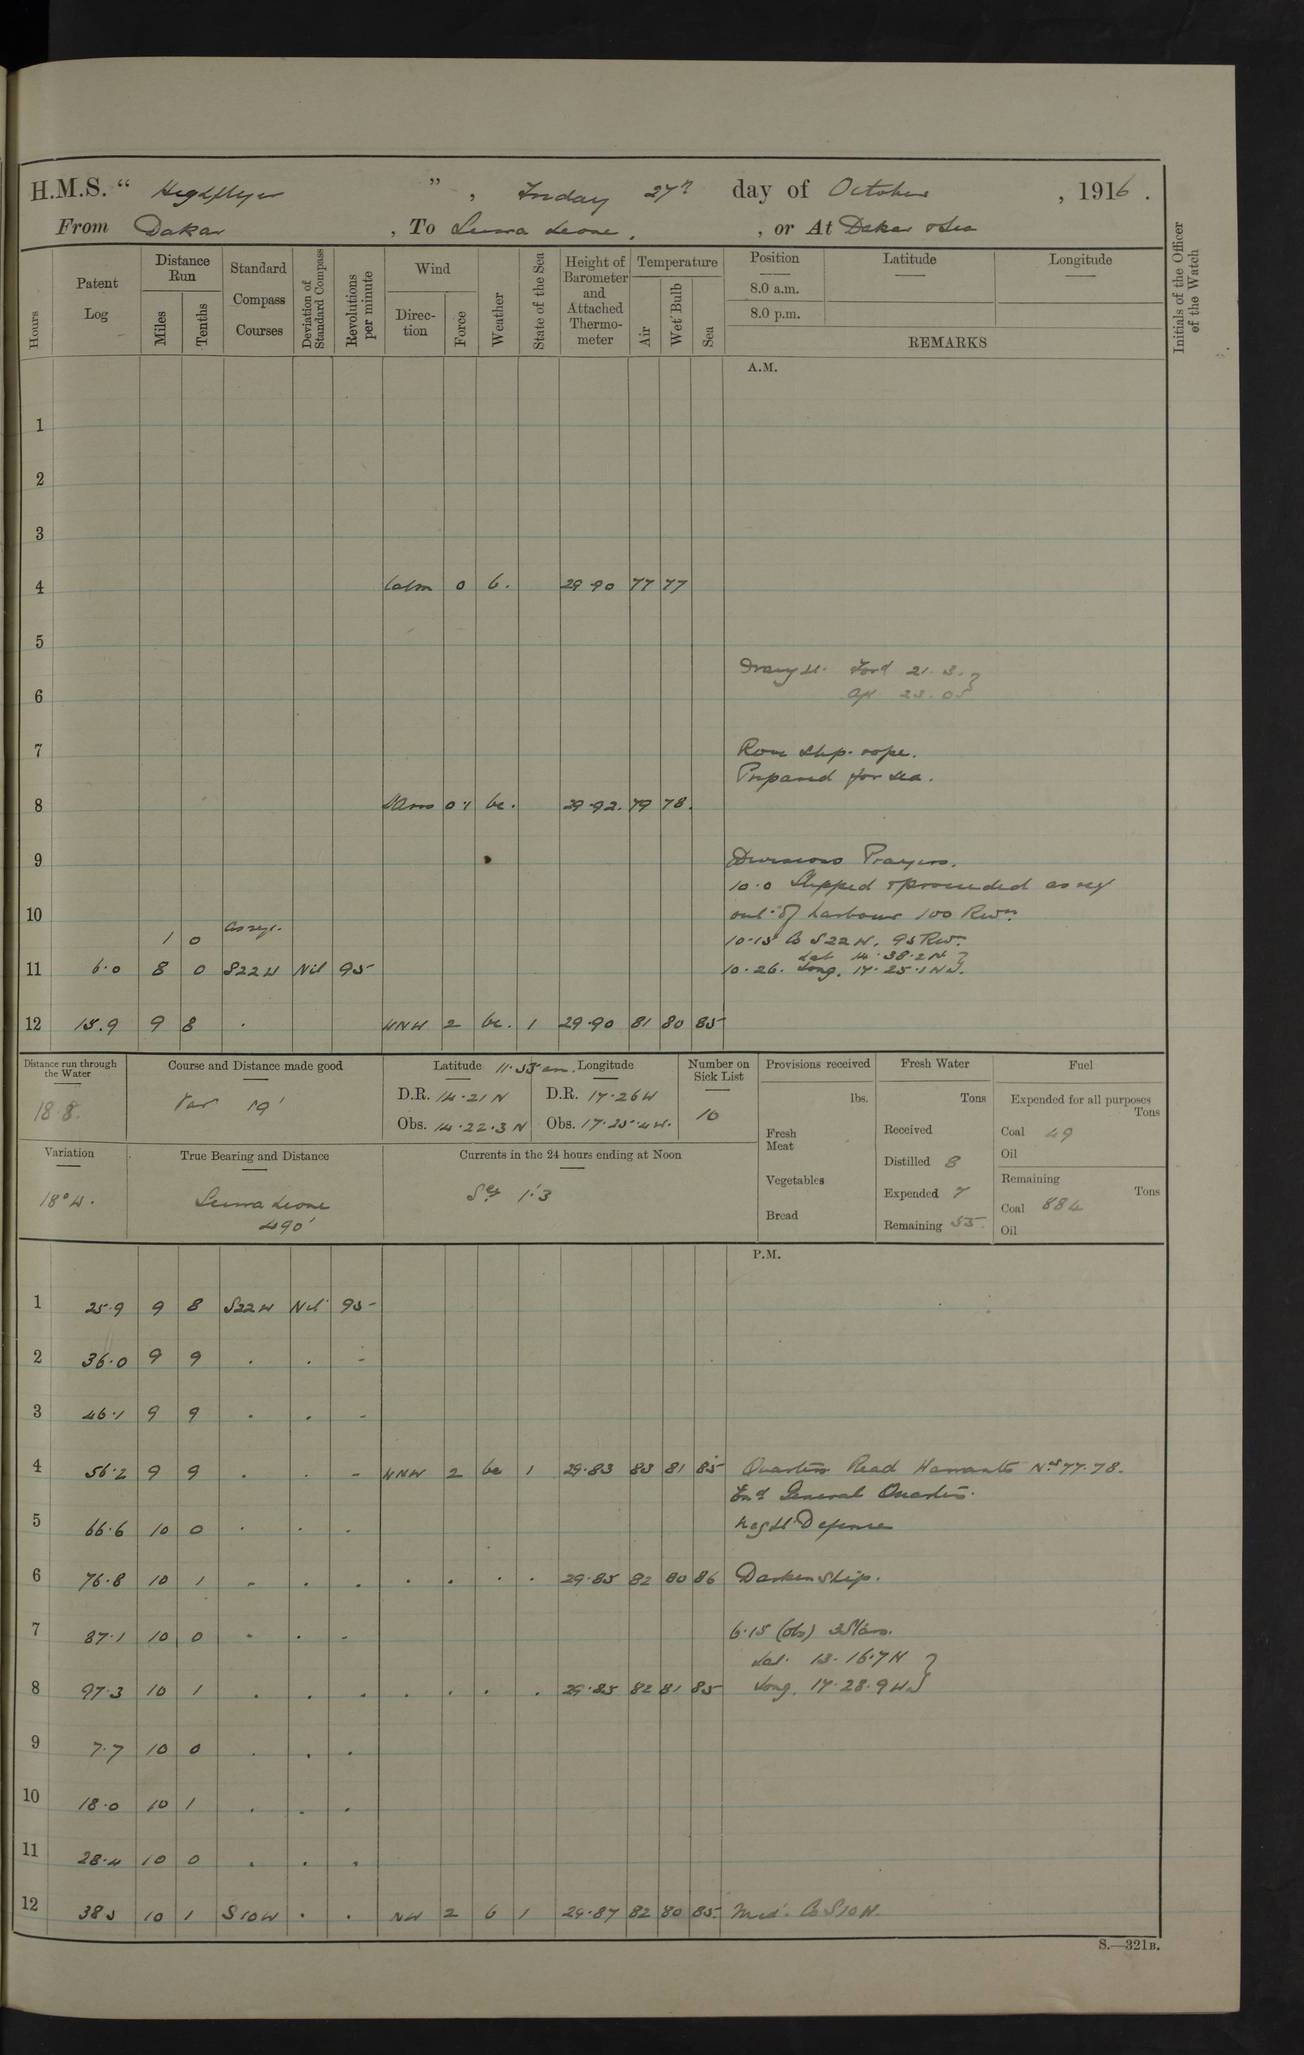 H.M.S. " Highflyer ", Friday 27th day of October, 1916.
From Dakar, To Sierra Leone, or At Dakar & Sea
Hours Patent Log Distance Run Miles Tenths Standard Compass Courses Deviation of Standard Compass Revolutions per minute Wind Direction Force Weather State of the Sea Height of Barometer and Attached Thermometer Temperature Air Wet Bulb Sea Position 8.0 a.m. 8.0 p.m. Latitude Longitude REMARKS Initials of the Officer of the Watch
A.M.
1
2
3
4 Calm 0 b. 29.90 77 77
5
Draught Ford 21.3.
6 Aft 23.05
7 Rove slip rope.
Prepared for sea.
8 0.1 bc. 29.92. 79 78.
9 Divisions Prayers.
10.0 Slipped & proceeded as req
10 As req. out of harbour 100 Revns
1 0 10.15 Co S22W. 95 Revs.
Lat 14.38.2N
11 6.0 8 0 S22W Nil 95 10.26. Long. 17.25.1W
12 15.9 9 8 . WNW 2 bc. 1 29.90 81 80 85
Distance run through the Water 18.8.
Course and Distance made good 19'
Latitude 11.55 am. Longitude
D.R. 14.21N D.R. 17.26W
Obs. 14.22.3N Obs. 17.25.4W.
Number on Sick List 10
Provisions received lbs.
Fresh Meat
Vegetables
Bread
Fresh Water Tons
Received
Distilled 8
Expended 7
Remaining 55.
Fuel
Expended for all purposes Tons
Coal 49
Oil
Remaining Tons
Coal 884
Oil
Variation 18°W.
True Bearing and Distance
Sierra Leone
490'
Currents in the 24 hours ending at Noon
1.'3
P.M.
1 25.9 9 8 S22W Nil 95
2 36.0 9 9 . . .
3 46.1 9 9 . . .
4 56.2 9 9 . . . WNW 2 bc 1 29.83 83 81 85 Quarters Read Warrants Nos 77.78.
Exd General Quarters.
5 66.6 10 0 . . . Night Defence
6 76.8 10 1 . . . . . . . 29.85 82 80 86 Darken Ship.
7 87.1 10 0 . . . 6.15 (obs) 3 Stars.
Lat. 13.16.7N
8 97.3 10 1 . . . . . . . 29.85 82 81 85 Long. 17.28.9W
9 7.7 10 0 . . .
10 18.0 10 1 . . .
11 28.4 10 0 . . .
12 38.5 10 1 S10W . . NW 2 b 1 29.87 82 80 85. Mid. Co S10W.
S.—321B.